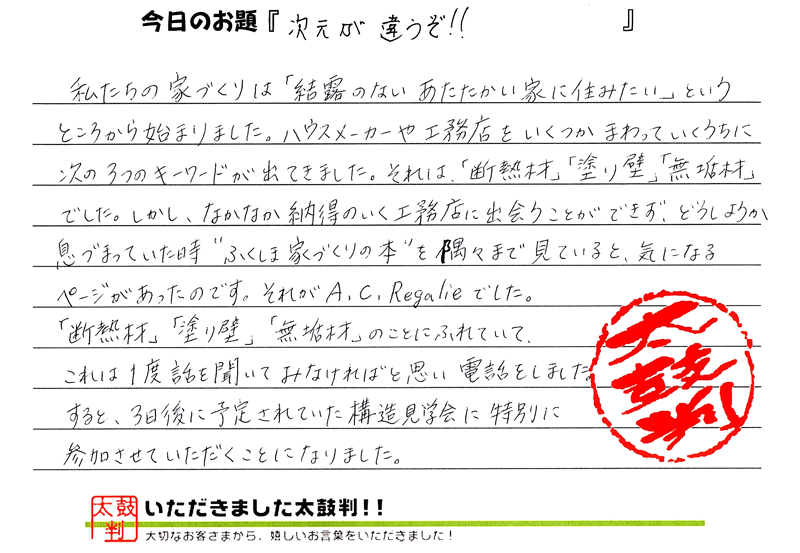 今日のお題『次元が違うぞ!!』
私たちの家づくりは「結露のない あたたかい家に住みたい」という
ところから始まりました。ハウスメーカーや工務店をいくつかまわっていくうちに
次の3つのキーワードが出てきました。それは、「断熱材」「塗り壁」「無垢材」
でした。しかし、なかなか納得のいく工務店に出会うことができず、どうしようか
息づまっていた時 "ふくしま家づくりの本" を隅々まで見ていると、気になる
ページがあったのです。それがA.C.Regalieでした。
「断熱材」「塗り壁」「無垢材」のことにふれていて、
これは1度話を聞いてみなければと思い電話をしました
すると、3日後に予定されていた構造見学会に特別に
参加させていただくことになりました。
太鼓判
太鼓判
いただきました太鼓判!!
大切なお客さまから、嬉しいお言葉をいただきました!